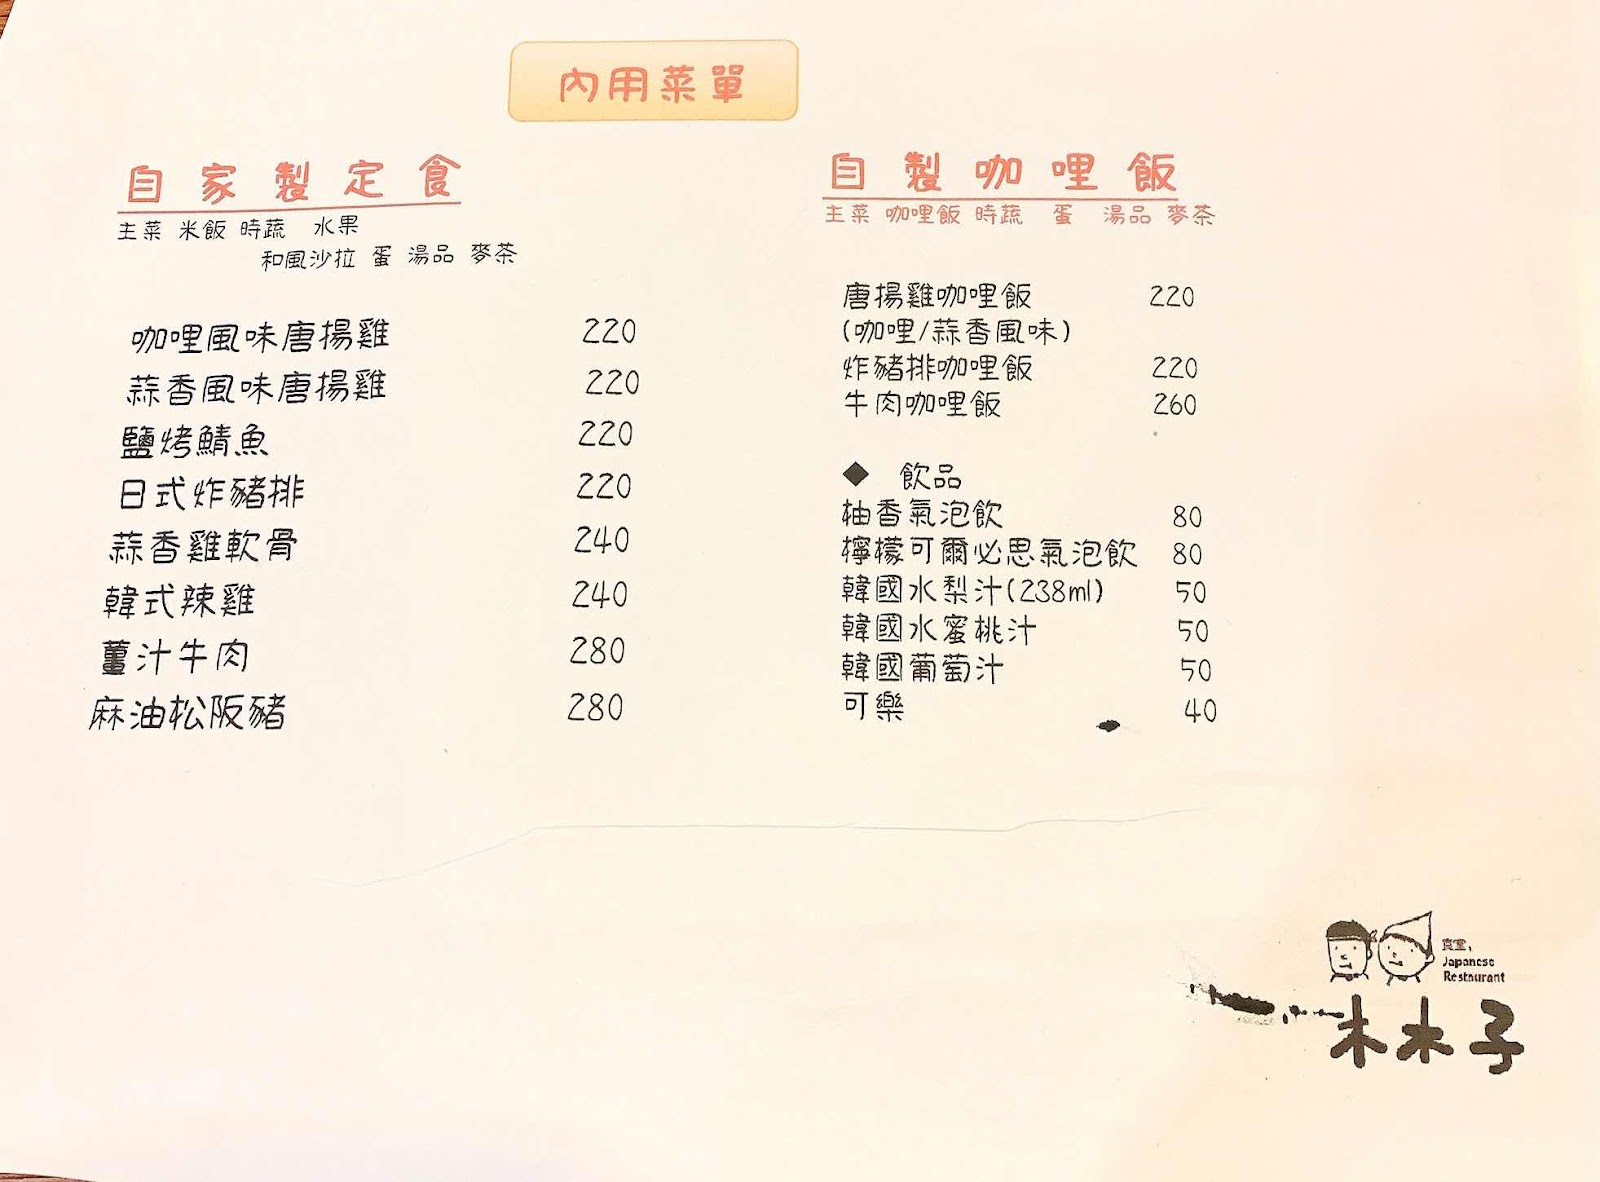 內用菜單
自家製定食
主菜 米飯 時蔬 水果
和風沙拉 蛋 湯品 麥茶
咖哩風味唐揚雞 220
蒜香風味唐揚雞 220
鹽烤鯖魚 220
日式炸豬排 220
蒜香雞軟骨 240
韓式辣雞 240
薑汁牛肉 280
麻油松阪豬 280
自製咖哩飯
主菜 咖哩飯 時蔬 蛋 湯品 麥茶
唐揚雞咖哩飯 220
(咖哩/蒜香風味)
炸豬排咖哩飯 220
牛肉咖哩飯 260
◆ 飲品
柚香氣泡飲 80
檸檬可爾必思氣泡飲 80
韓國水梨汁(238ml) 50
韓國水蜜桃汁 50
韓國葡萄汁 50
可樂 40
食堂,
Japanese
Restaurant
木木子